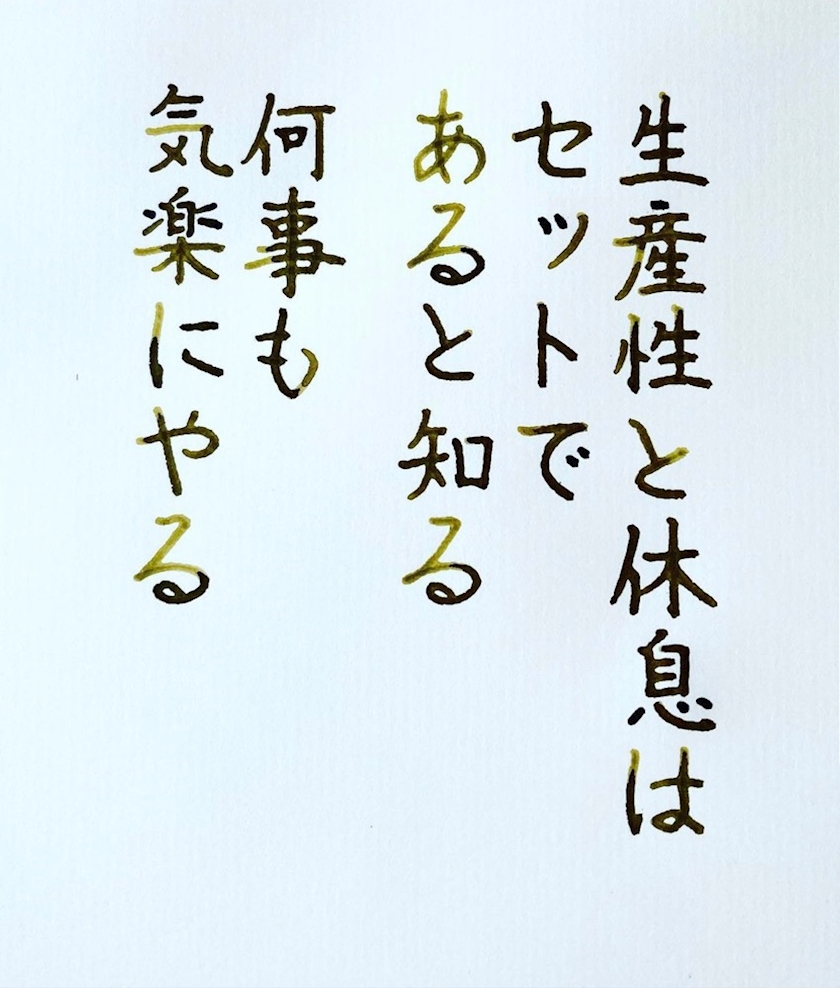 生産性と休息は
セットで
あると知る
何事も
気楽にやる